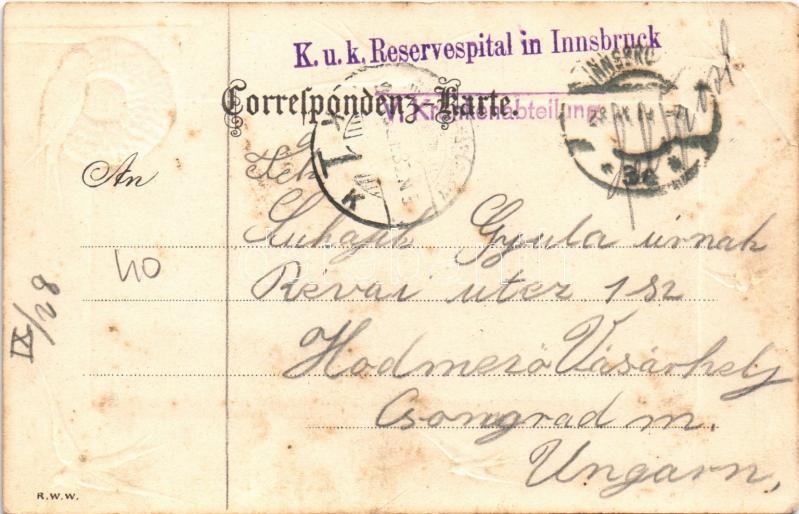 K. u. k. Reservespital in Innsbruck
Correspondenz-Karte.
V. Krankenabteilung
An
Tek
Lukajih Gyula úrnak
Révai utez 182
Hodmező Vásárhelj
Csongrad m.
Ungarn,
40
IX/28
R. W. W.